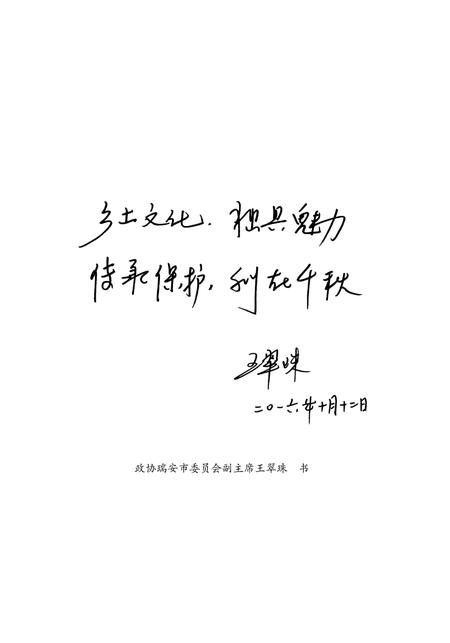 乡土文化．独具魅力
传承保护，利在千秋
王翠珠
二〇一六年十月十二日
政协瑞安市委员会副主席王翠珠　书